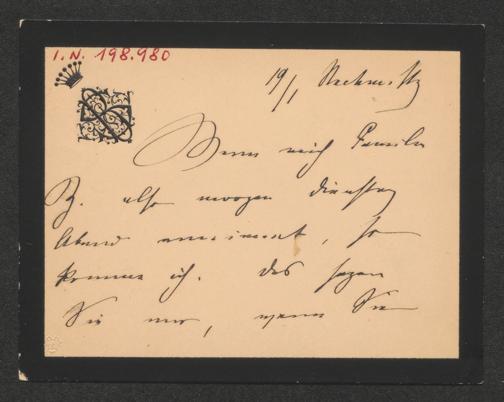 I.N. 198.980
19/1 Nachmittg
Wenn mich Familie
B. also morgen Dienstag
Abend annimmt, so
komme ich. Das sagen
Sie mir, wenn Sie